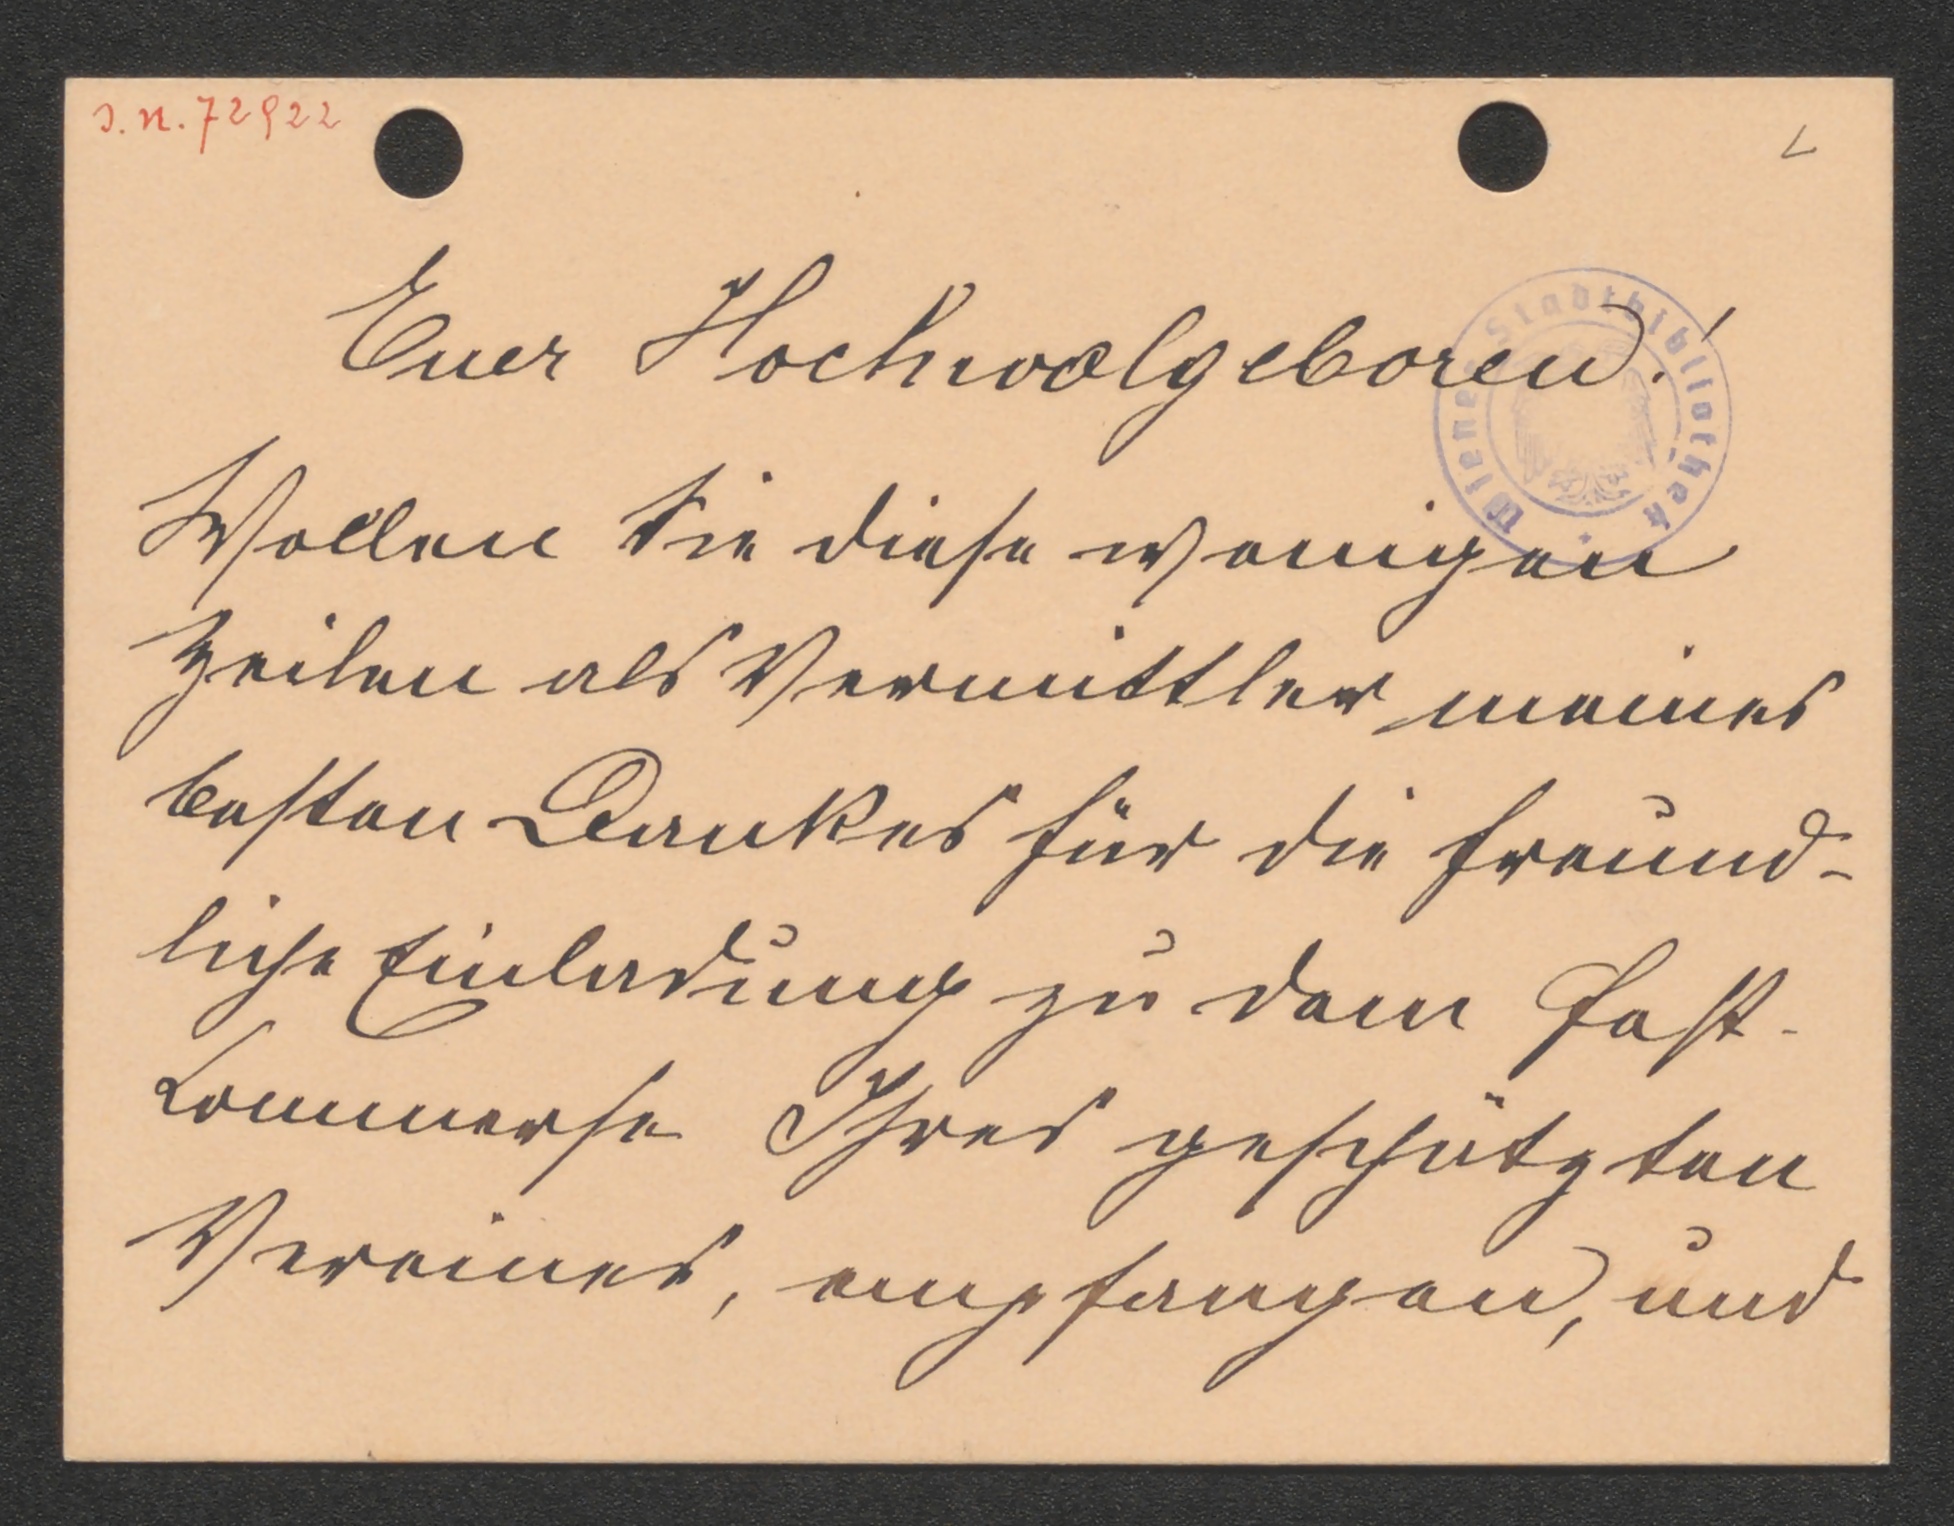 J. N. 72922
L
Euer Hochwolgeboren!
Wiener Stadtbibliothek
Wollen Sie diese wenigen
Zeilen als Vermittler meines
besten Dankes für die freund-
liche Einladung zu dem Fest-
Commerse Ihres geschätzten
Vereines, empfangen, und